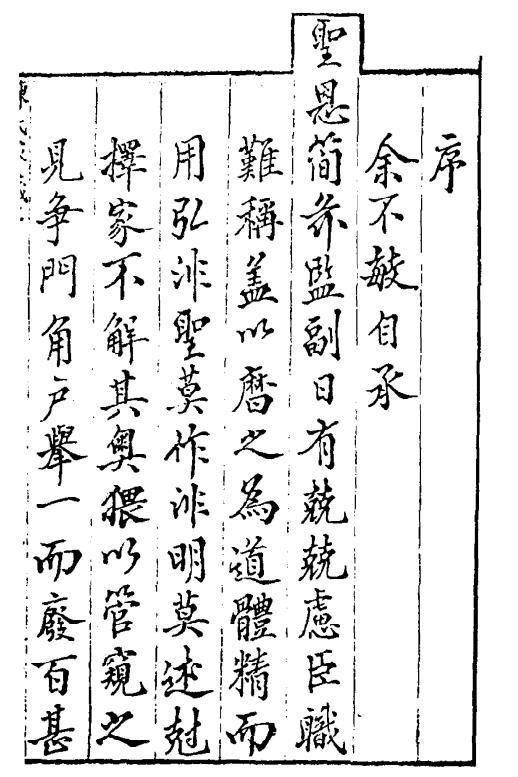 序
余不敏自承
聖恩簡畀監副日有兢兢慮臣職
難稱盖以暦之為道體精而
用弘非聖莫作非明莫述尅
擇家不解其奧猥以管窺之
見爭門角戶舉一而廢百甚